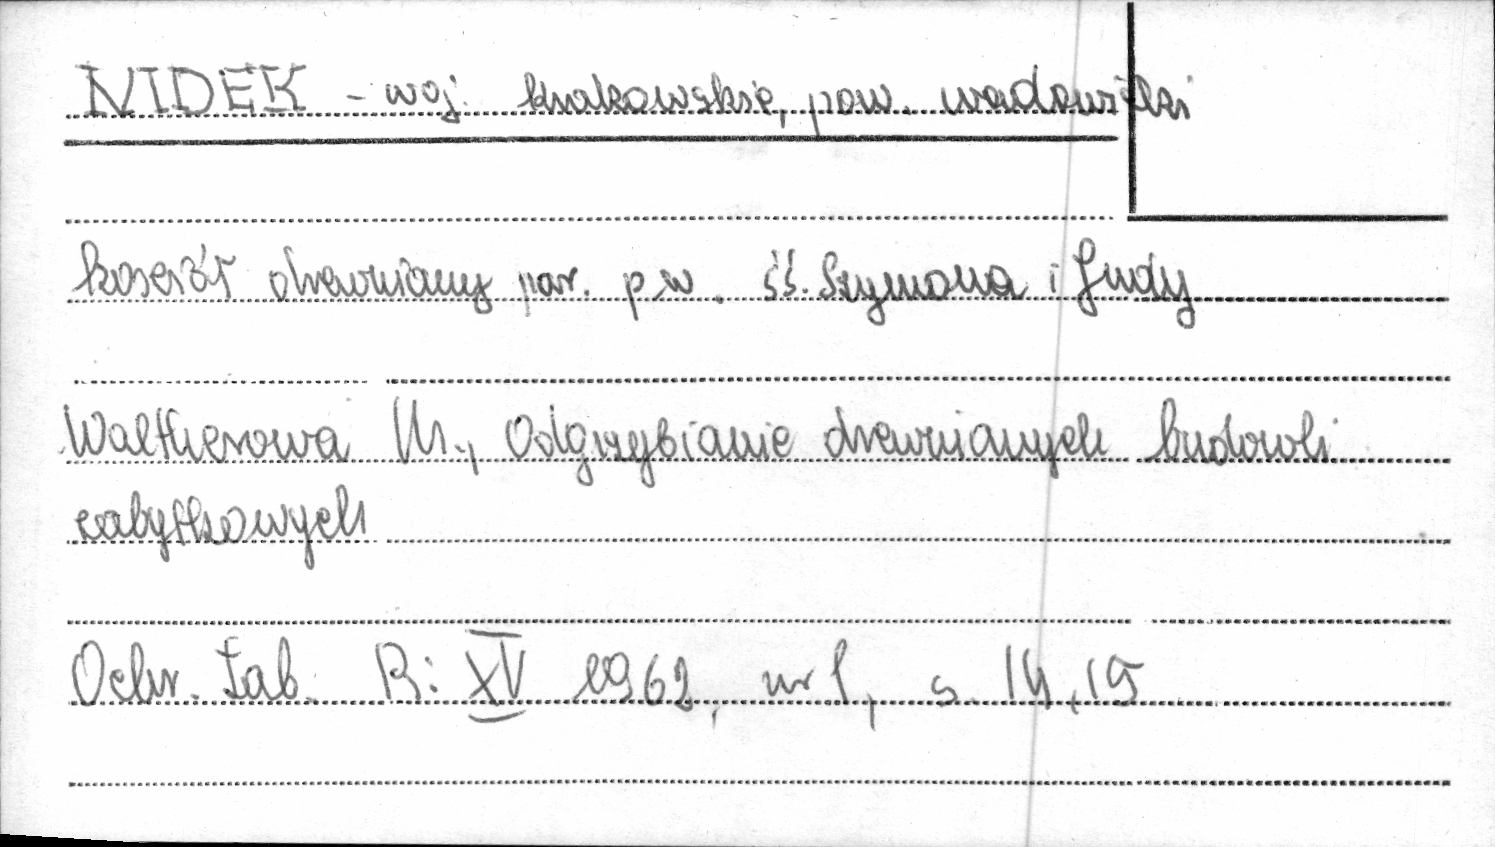 NIDEK - woj. krakowskie, pow. wadowicki
kościół drewniany par. p.w. śś. Szymona i Judy
Waltherowa M., Odgrzybianie drewnianych budowli
zabytkowych
Ochr. Zab. R: XV 1962, nr 1, s. 14, 15